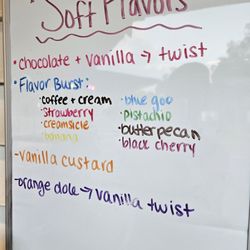 Soft Flavors
• chocolate + vanilla → twist
• Flavor Burst:
• coffee + cream • blue goo
• strawberry • pistachio
• creamsicle • butter pecan
• banana • black cherry
- vanilla custard
- orange dole → vanilla twist